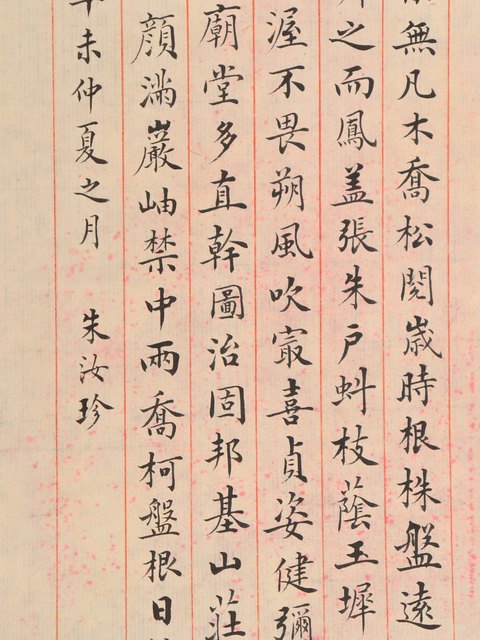 無凡木喬松閱歲時根株盤遠
之而鳳蓋張朱戶虯枝蔭玉墀
渥不畏朔風吹寂喜貞姿健彌
廟堂多直幹圖治固邦基山莊
顏滿巖岫禁中兩喬柯盤根日
未仲夏之月 朱汝珍